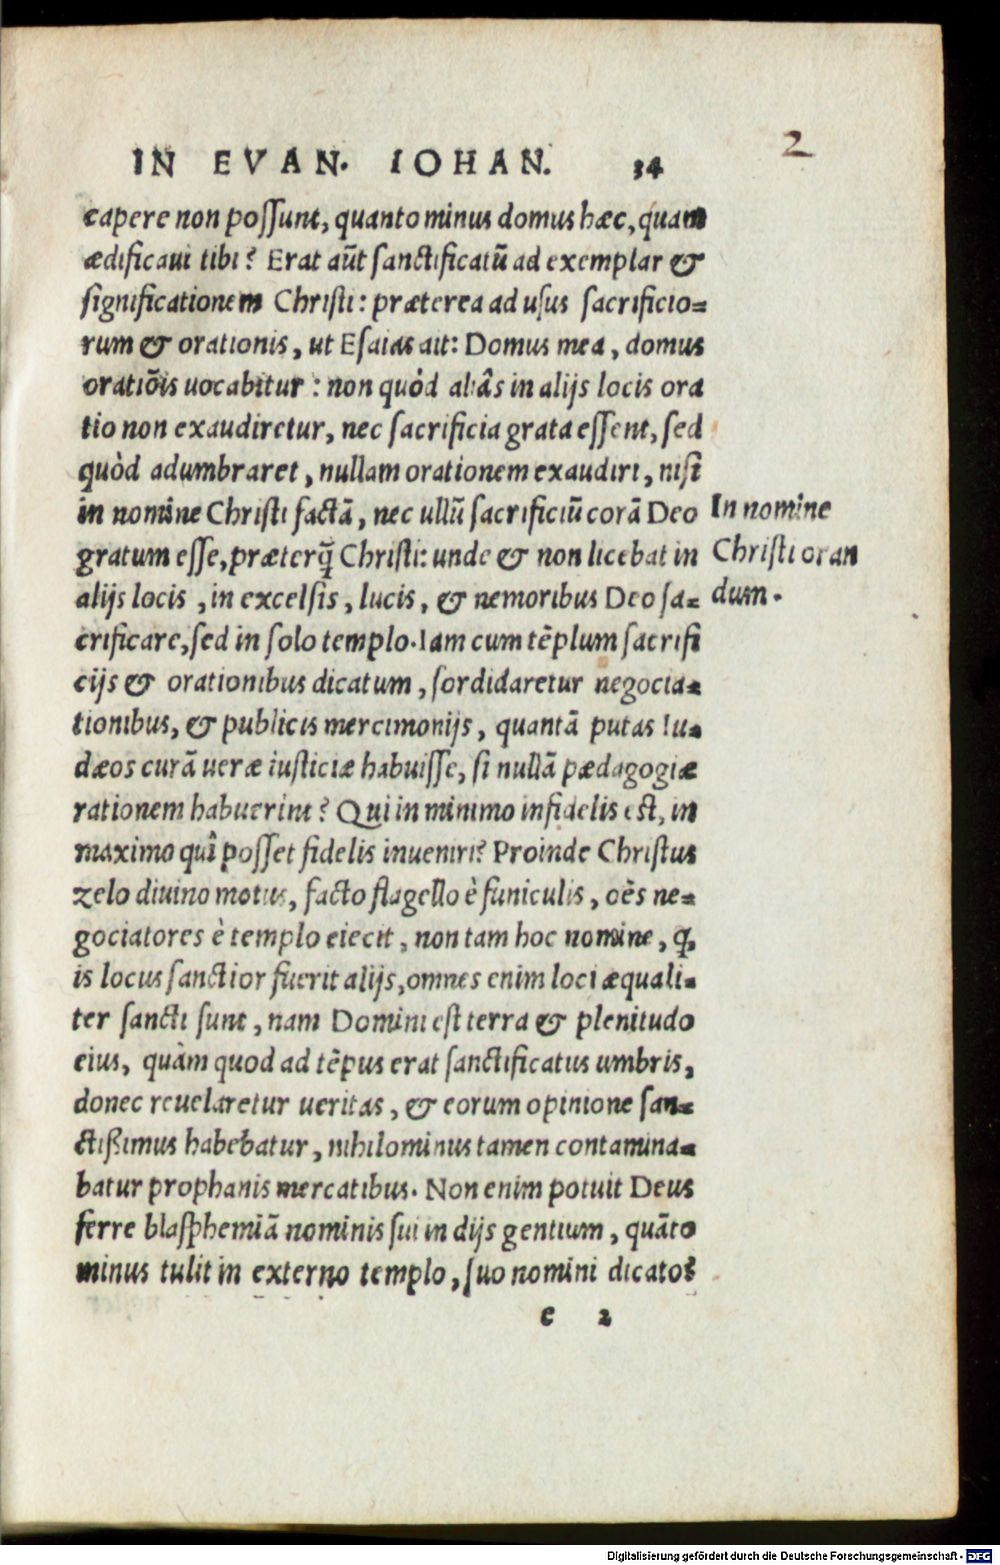 2
IN EVAN. IOHAN. 34
capere non possunt, quanto minus domus hæc, quam
ædificaui tibi? Erat aūt sanctificatū ad exemplar &
significationem Christi: præterea ad usus sacrificio=
rum & orationis, ut Esaias ait: Domus mea, domus
oratiōis uocabitur: non quòd aliâs in alijs locis ora
tio non exaudiretur, nec sacrificia grata essent, sed
quòd adumbraret, nullam orationem exaudiri, nisi
in nomine Christi factā, nec ullū sacrificiū corā Deo
gratum esse, præterq̃ Christi: unde & non licebat in
alijs locis, in excelsis, lucis, & nemoribus Deo sa=
crificare, sed in solo templo. Iam cum tēplum sacrifi
cijs & orationibus dicatum, sordidaretur negocia=
tionibus, & publicis mercimonijs, quantā putas Iu=
dæos curā ueræ iusticiæ habuisse, si nullā pædagogiæ
rationem habuerint? Qui in minimo infidelis est, in
maximo quî posset fidelis inueniri? Proinde Christus
zelo diuino motus, facto flagello è funiculis, oēs ne=
gociatores è templo eiecit, non tam hoc nomine, q,
is locus sanctior fuerit alijs, omnes enim loci æquali=
ter sancti sunt, nam Domini est terra & plenitudo
eius, quàm quod ad tēpus erat sanctificatus umbris,
donec reuelaretur ueritas, & eorum opinione san=
ctißimus habebatur, nihilominus tamen contamina=
batur prophanis mercatibus. Non enim potuit Deus
ferre blasphemiā nominis sui in dijs gentium, quāto
minus tulit in externo templo, suo nomini dicato?
In nomine
Christi oran
dum.
e 2
Digitalisierung gefördert durch die Deutsche Forschungsgemeinschaft - DFG